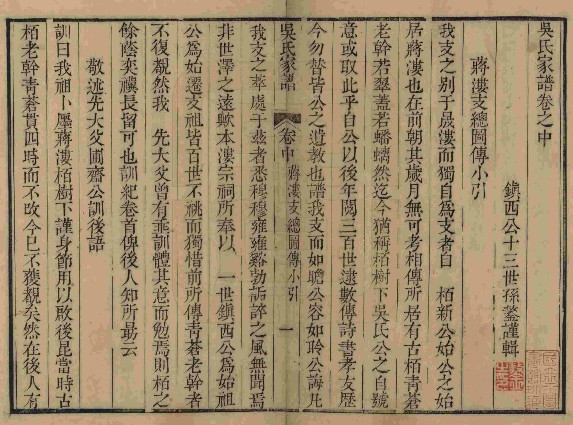 吳氏家譜卷之中
鎮西公十三世孫鏊謹輯
蔣漊支總圖傳小引
我支之别于晟漊而獨自為支者自 栢新公始公之始
居蔣漊也在前朝其歲月無可考相傳所居有古栢青蒼
老幹若翠蓋若蟠螭然迄今猶稱栢樹下吳氏公之自號
意或取此乎自公以後年閱三百世逮數傳詩書孝友歷
今勿替皆公之遺教也譜我支而如瞻公容如聆公誨凡
吳氏家譜 卷中 蔣漊支總圖傳小引 一
我支之萃處于茲者悉穆穆雍雍谿勃詬誶之風無聞焉
非世澤之遠歟本漊宗祠所奉以 一世鎮西公為始祖
公為始遷支祖皆百世不祧而獨惜前所傳青蒼老幹者
不復覩然我 先大父曾有垂訓體其意而勉焉則栢之
餘蔭奕禩長留可也訓紀卷首俾後人知所勗云
敬述先大父圃齋公訓後語
訓曰我祖卜厝蔣漊栢樹下謹身節用以啟後昆當時古
栢老幹青蒼貫四時而不改今已不獲覩矣然在後人有